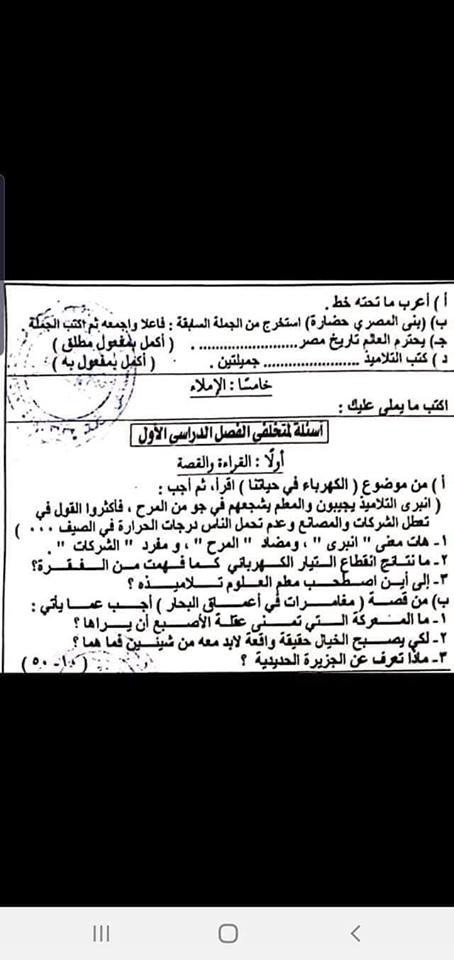 أ ) أعرب ما تحته خط .
ب) (بنى المصري حضارة) استخرج من الجملة السابقة : فاعلا واجمعه ثم اكتب الجملة .
جـ) يحترم العالم تاريخ مصر ........................ . ( أكمل بمفعول مطلق )
د ) كتب التلاميذ ........................ جميلتين . ( أكمل بمفعول به )
خامسًا : الإملاء
اكتب ما يملى عليك :
أسئلة لمتخلفي الفصل الدراسي الأول
أولًا : القراءة والقصة
أ ) من موضوع ( الكهرباء في حياتنا ) اقرأ، ثم أجب :
( انبرى التلاميذ يجيبون والمعلم يشجعهم في جو من المرح ، فأكثروا القول في
تعطل الشركات والمصانع وعدم تحمل الناس درجات الحرارة في الصيف ٠٠٠ )
١- هات معنى " انبرى " ، ومضاد " المرح " ، و مفرد " الشركات " .
٢- ما نتائج انقطاع التيار الكهربائي كما فهمت من الفقرة؟
٣- إلى أين اصطحب معلم العلوم تلاميذه ؟
ب) من قصة ( مغامرات في أعماق البحار ) أجب عما يأتي :
١- ما المعركة التي تمنى عقلة الأصبع أن يراها ؟
٢- لكي يصبح الخيال حقيقة واقعة لابد معه من شيئين فما هما ؟
٣- ماذا تعرف عن الجزيرة الحديدية ؟ ( ١٠ - ٥٠ )